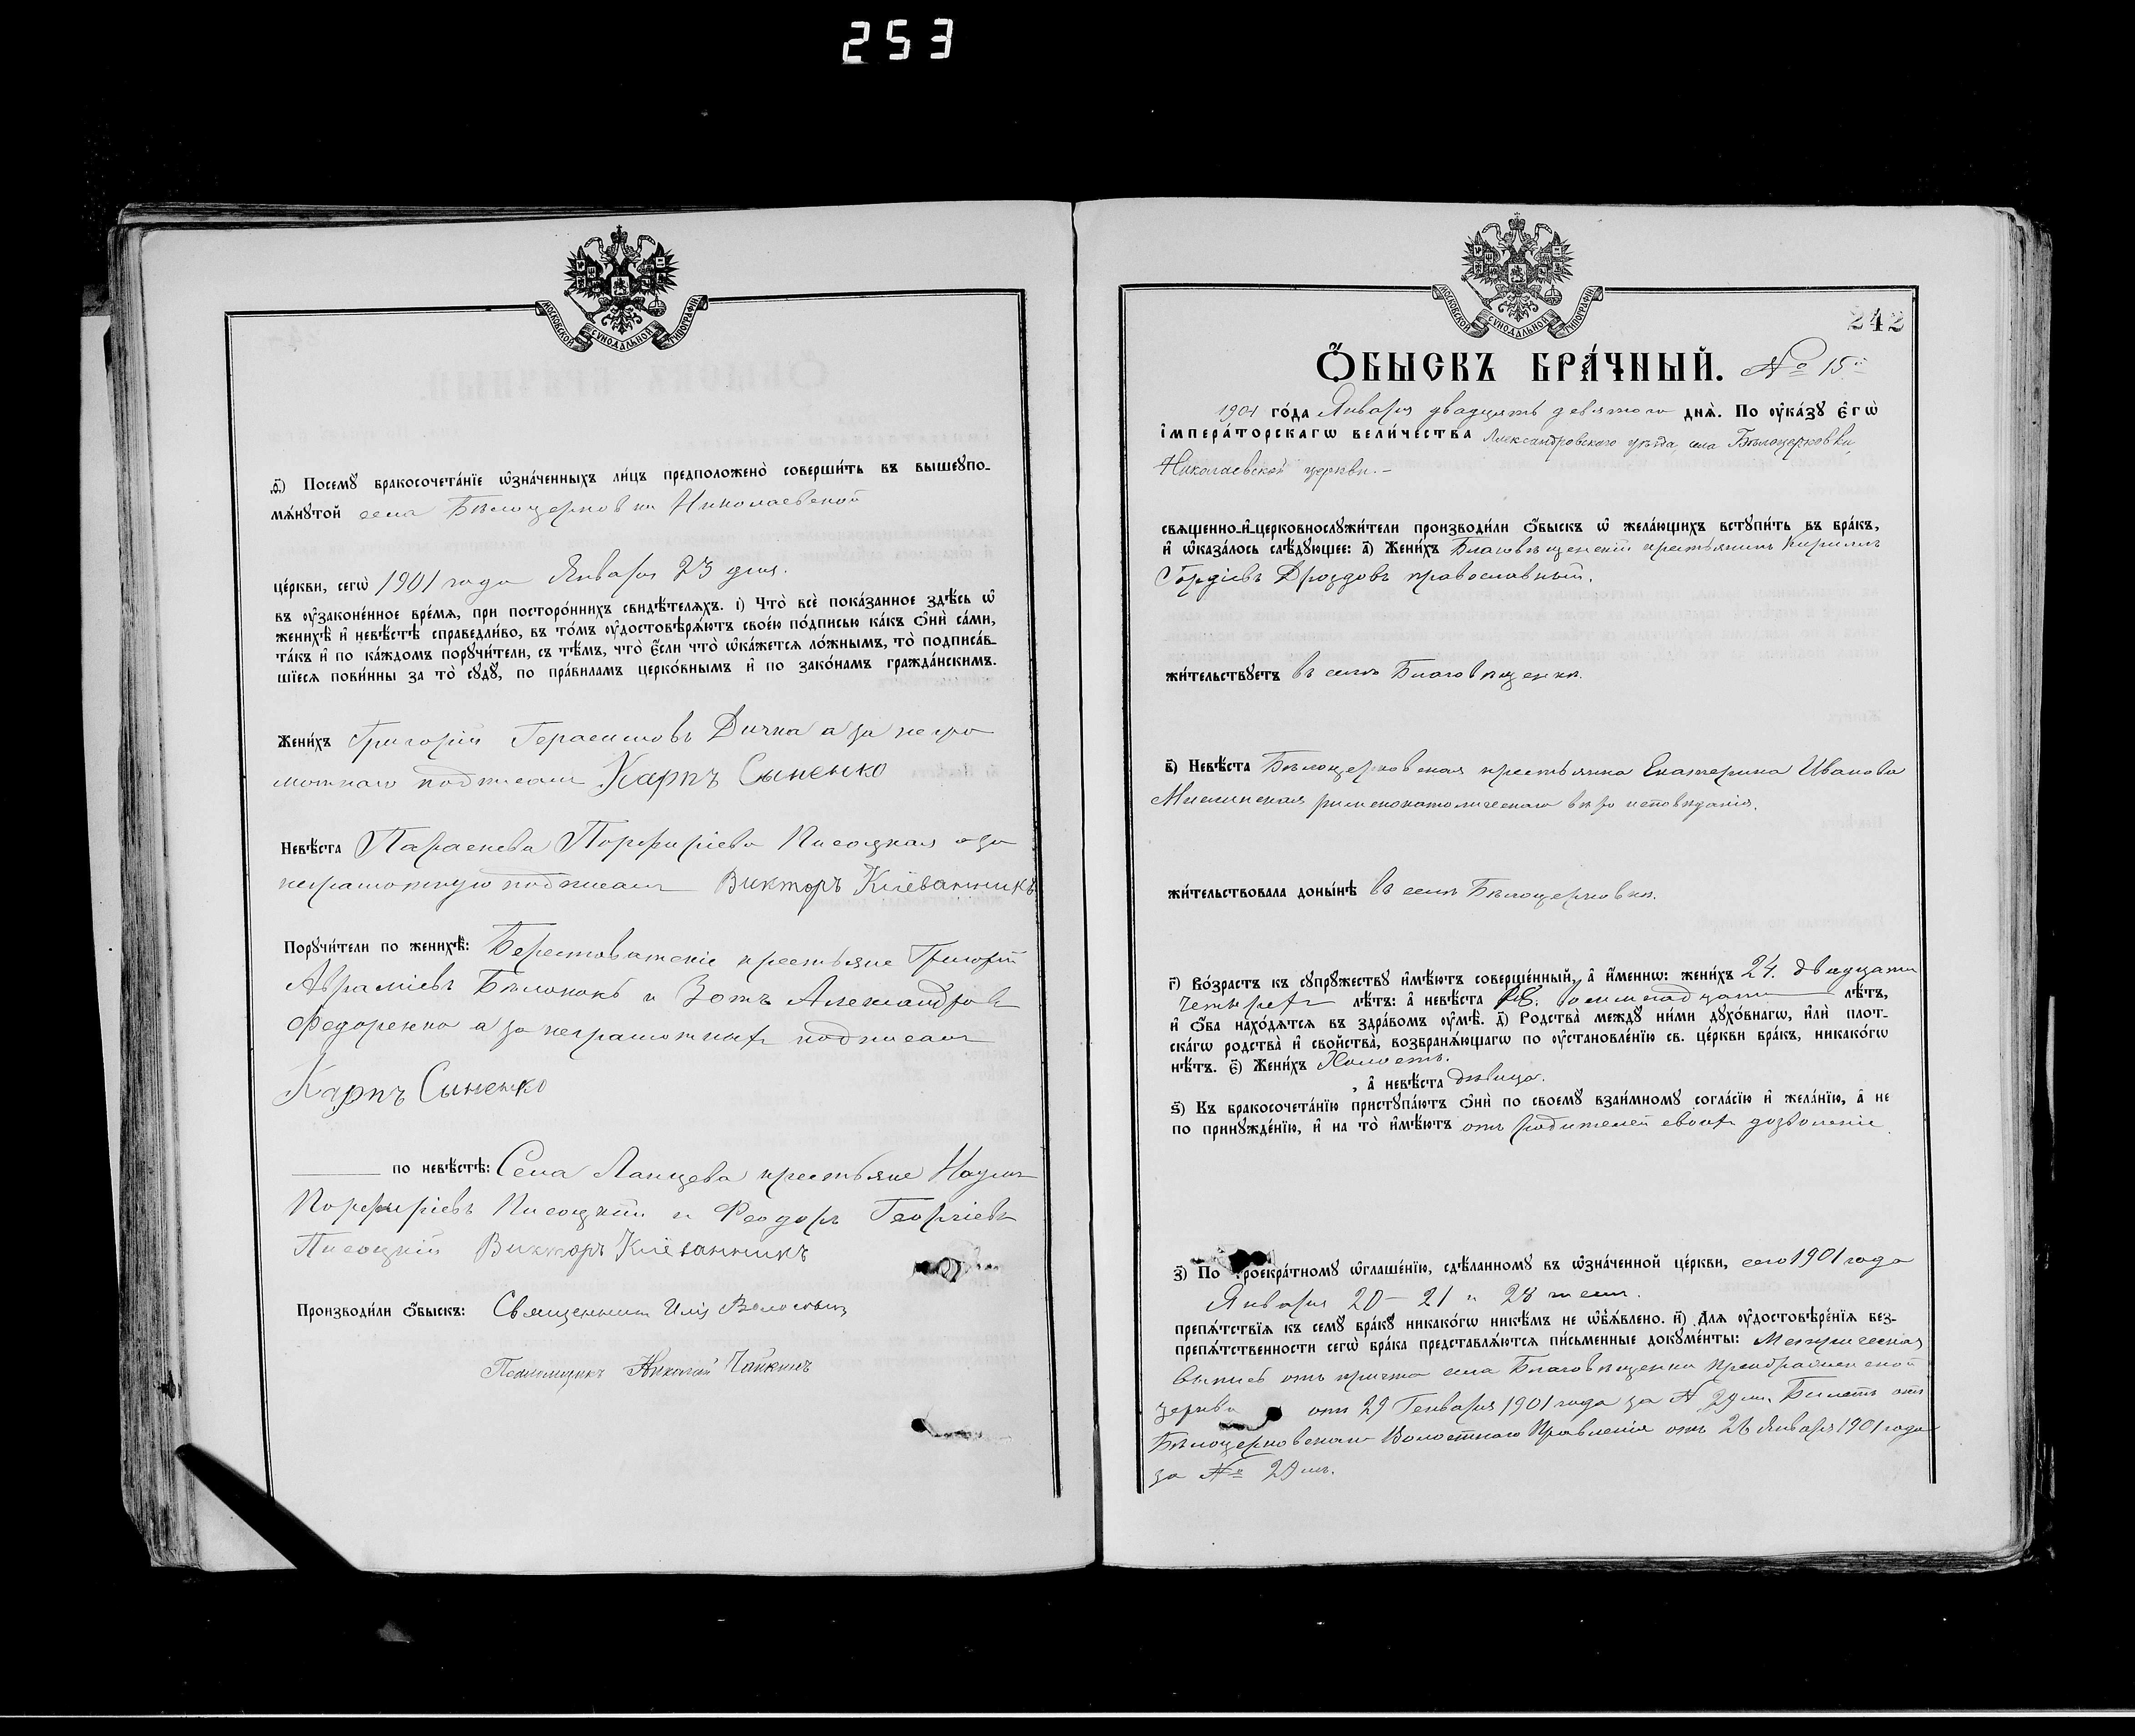 253
МОСКОВСКОЙ СУНОДАЛЬНОЙ ТИПОГРАФІИ
ѳ҃) Посемꙋ бракосочета́нїе ѡ҆зна́ченныхъ ли́цъ предположено̀ соверши́ть въ вышеꙋпо-
мѧ́нꙋтой села Бѣлоцерковки Николаевской
це́ркви, сегѡ̀ 1901 года Января 23 дня.
въ ᲂу҆законе́нное вре́мѧ, при посторо́ннихъ свидѣ́телѧхъ. і҃) Что̀ всѐ пока́занное здѣ́сь ѡ҆
женихѣ̀ и҆ невѣ́стѣ справедли́во, въ то́мъ ᲂу҆достовѣрѧ́ютъ свое́ю по́дписью ка́къ ѻ҆нѝ са́ми,
та́къ и҆ по ка́ждомъ порꙋчи́тели, съ тѣ́мъ, что̀ є҆́сли что̀ ѡ҆ка́жетсѧ ло́жнымъ, то̀ подписа́в-
шїесѧ пови́нны за то̀ сꙋдꙋ̀, по пра́виламъ церко́внымъ и҆ по зако́намъ гражда́нскимъ.
Жени́хъ Григорій Герасимовъ Дичка а за негра
мотнаго подписалъ Карпъ Сыненко
Невѣ́ста Параскева Порфиріева Писоцкая а за
неграмотную подписалъ Викторъ Кліеванникъ
Порꙋчи́тели по женихѣ̀: Берестоватскіе крестьяне Григорій
Авраміевъ Бѣлоконь и Зотъ Александровъ
Федоренко а за неграмотныхъ подписалъ
Карпъ Сыненко
по невѣ́стѣ: Села Ланцева крестьяне Наумъ
Порфиріевъ Писоцкій и Феодоръ Георгіевъ
Писоцкій Викторъ Кліеванникъ
Производи́ли ѻ҆́быскъ: Священникъ Илія
Николай Чайкинъ
МОСКОВСКОЙ СУНОДАЛЬНОЙ ТИПОГРАФІИ
242
Ѻ҆́быскъ бра́чный. № 15й
1901 го́да Января двадцать девятаго днѧ̀. По ᲂу҆ка́зꙋ є҆гѡ̀
і҆мпера́торскагѡ вели́чества Александровскаго уѣзда, села Бѣлоцерковки,
Николаевской церкви.-
свѧщенно-и҆-церковнослꙋжи́тели производи́ли ѻ҆́быскъ ѡ҆ жела́ющихъ встꙋпи́ть въ бра́къ,
и҆ ѡ҆каза́лось слѣ́дꙋющее: а҃) Жени́хъ Благовѣщенскій крестьянинъ Кириллъ
Гордіевъ Дроздовъ православный.
жи́тельствꙋетъ въ селѣ Благовѣщенкѣ.
в҃) Невѣ́ста Бѣлоцерковская крестьянка Екатерина Иванова
римскокатолическаго вѣроисповѣданія.
жи́тельствовала доны́нѣ въ селѣ Бѣлоцерковкѣ.
г҃) Во́зрастъ къ сꙋпрꙋ́жествꙋ и҆мѣ́ютъ соверше́нный, а҆ и҆́меннѡ: жени́хъ 24. двадцати
четырехъ лѣ́тъ: а҆ невѣ́ста 18. восемнадцати лѣ́тъ,
и҆ ѻ҆́ба нахо́дѧтсѧ въ здра́вомъ ᲂу҆мѣ̀. д҃) Родства̀ междꙋ̀ ни́ми дꙋхо́внагѡ, и҆лѝ плот-
ска́гѡ родства̀ и҆ сво́йства̀, возбранѧ́ющагѡ по ᲂу҆становле́нїю св. це́ркви бра́къ, никако́гѡ
нѣ́тъ. є҃) Жени́хъ Холостъ.
, а҆ невѣ́ста дѣвица.
ѕ҃) Къ бракосочета́нїю пристꙋпа́ютъ ѻ҆нѝ по своемꙋ̀ взаи́мномꙋ согла́сїю и҆ жела́нїю, а҆ не
по принꙋжде́нїю, и҆ на то̀ и҆мѣ́ютъ отъ родителей своихъ дозволеніе
з҃) По троекра́тномꙋ ѡ҆глаше́нїю, сдѣ́ланномꙋ въ ѡ҆зна́ченной це́ркви, сего 1901 года
Января 20 - 21 и 28 числ.
препѧ́тствїѧ къ семꙋ̀ бра́кꙋ никако́гѡ никѣ́мъ не ѡ҆б̾ѧ́влено. и҃) Длѧ ᲂу҆достовѣре́нїѧ без-
препѧ́тственности сегѡ̀ бра́ка представлѧ́ютсѧ пи́сьменные докꙋме́нты: Метрическая
выпись отъ причта села Благовѣщенки Преображенской
церкви отъ 29 Генваря 1901 года за № Билетъ отъ
Бѣлоцерковскаго Волостнаго Правленія отъ 26 Января 1901 года
за №